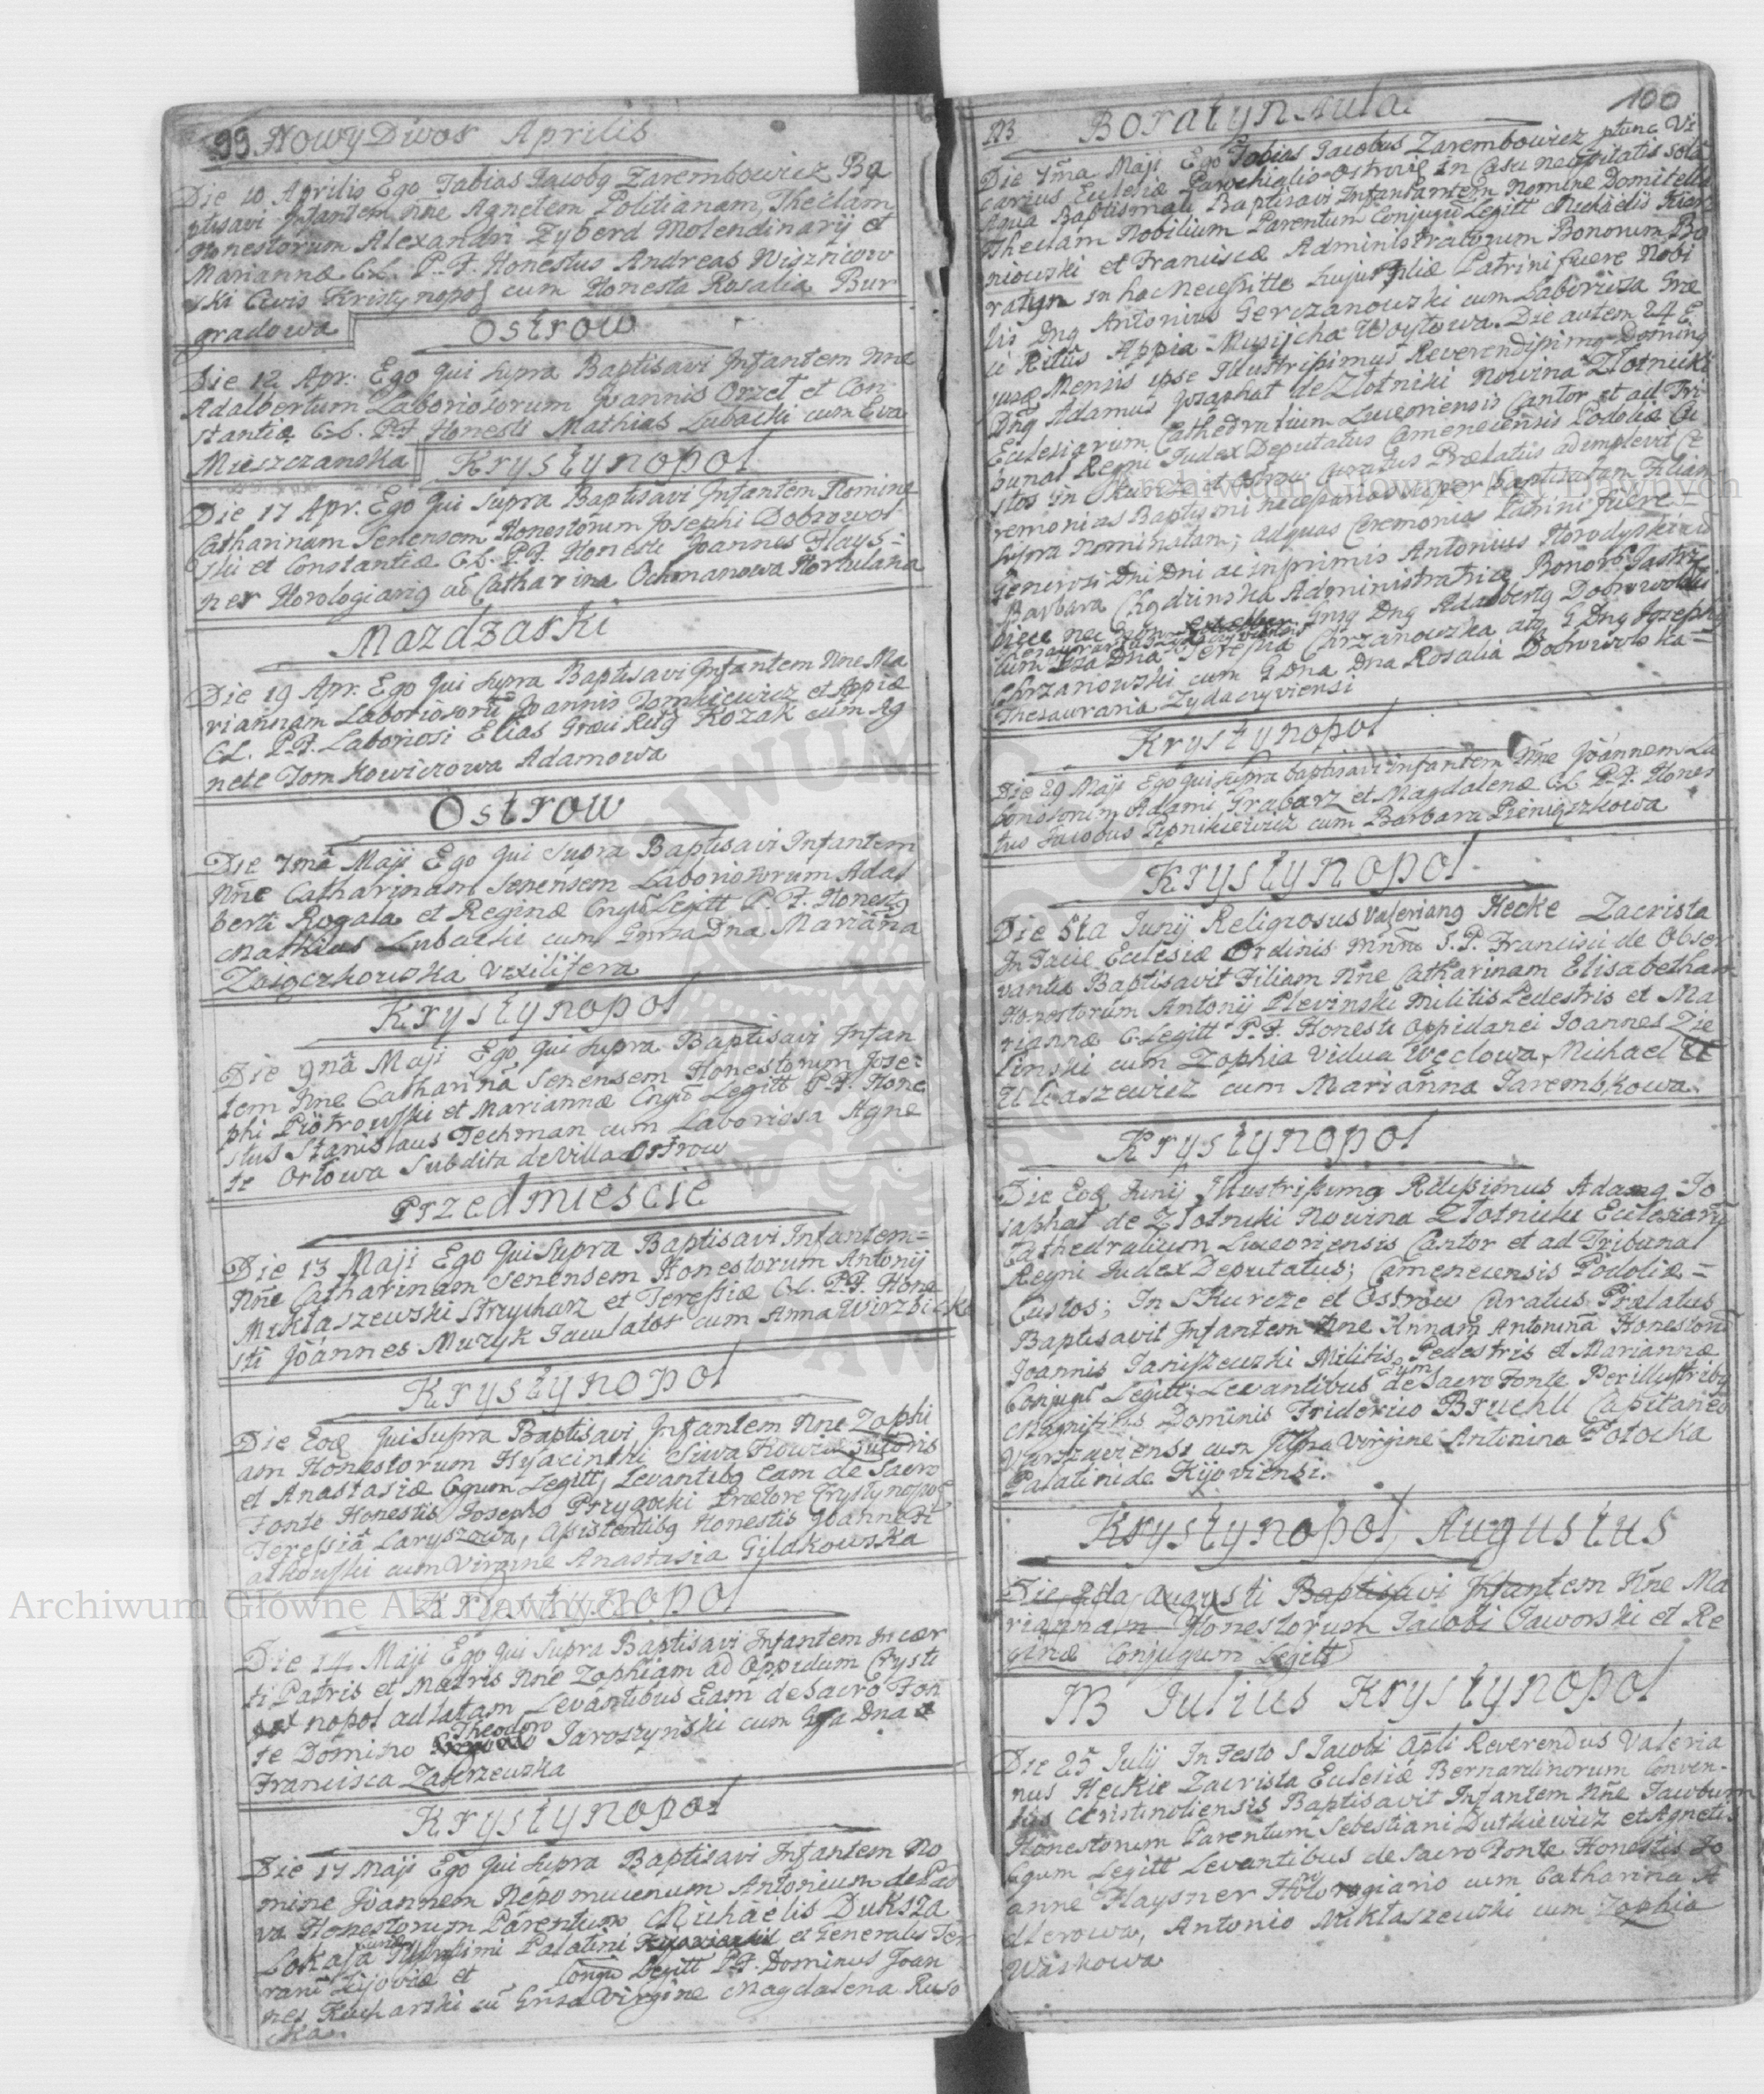 99 Nowy Dwor Aprilis
Die 10 Aprilis Ego Tabias Jacobg Zarembowicz Ba
ptisavi Infantem Nne Agnetem Politianam, Theclam
Honestorum Alexandri Zyberd Molendinarij et
Mariannæ CL. P.F. Honestus Andreas Wiszniow
ski Civis Kristynopol cum Honesta Rosalia Bur
gradowa
Ostrow
Die 12 Apr: Ego qui supra Baptisavi Infantem Nne
Adalbertum Laboriosorum Joannis Orzel et Con
stantiæ CL. P.F. Honesti Mathias Lubacki cum Eva
Mieszczanska
Krystynopol
Die 17 Apr. Ego qui supra Baptisavi Infantem Nomine
Catharinam Senensem Honestorum Josephi Dobrowol
ski et Constantiæ CL. P.F. Honesti Joannes Hays=
ner Horologiarig cu Catharina Ochmanowa Hortulana
Mazdzarki
Die 19 Apr. Ego qui supra Baptisavi Infantem Nne Ma
riannam Laboriosoru Joannis Tomkiewicz et Appiæ
CL. P.F. Laboriosi Elias Græci Ritg Kozak cum Ag
nete Tomkowiczowa Adamowa
Ostrow
Die 7ma Maji Ego qui supra Baptisavi Infantem
Nne Catharinam Senensem Laboriosorum Adal
berti Rogala et Reginæ Legitt P.F. Honestg
Mathias Lubacki cum Gnsa Dna Marianna
Zaiączkowska Vexilifera
Krystynopol
Die 9na Maji Ego qui supra Baptisavi Infan
tem Nne Catharina Senensem Honestorum Jose=
phi Piotrowski et Mariannæ Legitt P.F. Hone
stus Stanislaus Techman cum Laboriosa Agne
te Orłowa Subdita de Villa Ostrow
Przedmiescie
Die 13 Maji Ego Qui supra Baptisavi Infantem=
Nne Catharinam Senensem Honestorum Antonij
Mikłaszewski Strycharz et Teressiæ CL. P.F. Hone
sti Joannes Muzyk Jaculator cum Anna Wirzbicka
Krystynopol
Die Eog qui supra Baptisavi Infantem Nne Zophi
am Honestorum Hyacinthi Sutoris
et Anastasiæ Cgum Legitt; Levantibg Eam de Sacro
Fonte Honestis Josepho Przygocki Prætore Crystynopol
Teressia Laryszowa, Assistentibg Honestis Joanne
cum Virgine Anastasia Gildkowska
Krystynopol
Die 14 Maji Ego qui supra Baptisavi Infantem Incer
ti Patris et Matris Nne Zophiam ad Oppidum Crysti
nopol adlatam Levantibus Eam de Sacro Fon
te Domino Theodoro Jaroszynski cum Gsa Dna
Francisca Zakrzewska
Krystynopol
Die 17 Maji Ego Qui supra Baptisavi Infantem No
mine Joannem Nepomucenum Antonium de Pad
va Honestorum Parentum Michaelis Duksza
Lokaja Palatini et Generalis Ter
rarum Kijoviæ et Legitt P.F. Dominus Joan
nes Kucharski cu Gnsa Virgine Magdalena Ruso
cka.
100
Boratyn Aula
Die 7ma Maji Ego Tobias Jacobus Zarembowicz ptunc Vi
carius Eclesiæ Parochialis Ostrov in Casu necessitatis sola
Aqua Baptismali Baptisavi Infantem nomine Domitella
Theclam Nobilium Parentum Conjugu Legitt Michaelis
niowski et Franciscæ Administratorum Bonorum Bo
ratyn in hac necessitte hujus Filiæ Patrini fuere Nobi
lis Dng Antonius Gerczanowski cum Laboriosa Græ
ci Ritus Appia Musijcha Woytowa. Die autem 24 E
jusd Mensis ipse Illustrissimus Reverendissimg Doming
Dng Adamus Josaphat de Złotniki Nowina Złotnicki
Eclesiarum Cathedralium Luceoriensis Cantor et ad Tri
bunal Regni Judex Deputatus Camenecensis Podoliæ Cu
stos in Skurcze et Ostrow Curatus Prælatus adimplevit Cæ
remonias Baptismi necessarias super baptisatam Filiam
supra nominatam; ad quas Cæremonias Patrini fuere=
Generosi Dni Dni ac inprimis Antonius Horodyski cum
Barbara Administratrice Bonoro Jastrzę
bice nec non Gnsg Dng Adalbertg Dobrowolski
cum Gsa Dna Teressia Chrzanowska atg G Dng Josephg
Chrzanowski cum G Dna Dna Rosalia Dobrowolska=
Thesauraria Zydaczyviensi
Krystynopol
Die 29 Maji Ego qui supra baptisavi Infantem Nne Joannem La
boriosorum Adami Grabarz et Magdalenæ CL P.F. Hones
tus Jacobus cum Barbara Pieniązkowa
Krystynopol
Die 5ta Junij Religiosus Valeriang Hecke Zacrista
In Facie Eclesiæ Ordinis S.P. Francisci de Obser
vantia Baptisavit Filiam Nne Catharinam Elisabetham
Honestorum Antonij Plevinski Militis Pedestris et Ma
riannæ C Legitt P.F. Honesti Oppidanei Joannes Zie
linski cum Zophia Vidua Węclowa, Michael
Uliaszewicz cum Marianna Jarembkowa.
Krystynopol
Die Eog Junij Illustrissimg Rdissimus Adamg Jo
saphat de Złotniki Nowina Złotnicki Eclesiaru
Cathedralium Luceoriensis Cantor et ad Tribunal
Regni Judex Deputatus; Camenecensis Podoliæ=
Custos; In Skurcze et Ostrow Curatus Prælatus
Baptisavit Infantem Nne Annam Antonina Honestoru
Joannis Janiszewski Militis Pedestris et Mariannæ
Conjugu Legitt; Levantibus eum de Sacro Fonte Perillustribg
Magnificis Dominis Friderico Bruchll Capitaneo
Warszaviensi cum Virgine Antonina Potocka
Palatinide Kijoviensi.
Krystynopol, Augustus
Die 2da Augusti Baptisavi Infantem Nne Ma
riannam Honestorum Jacobi Jaworski et Re
ginæ Conjugum Legitt
NB Julius Krystynopol
Die 25 Julij In Festo S Jacobi Apli Reverendus Valeria
nus Heckie Zacrista Eclesiæ Bernardinorum Conven-
tus Cristinoliensis Baptisavit Infantem Nne Jacobum
Honestorum Parentum Sebestiani Dutkiewicz et Agnetis
Cgum Legitt Levantibus de Sacro Fonte Honestis Jo
anne Haysner Horologiario cum Catharina A
dlerowa, Antonio Mikłaszewski cum Zophia
Waskowa
Archiwum Główne Akt Dawnych
Archiwum Główne Akt Dawnych